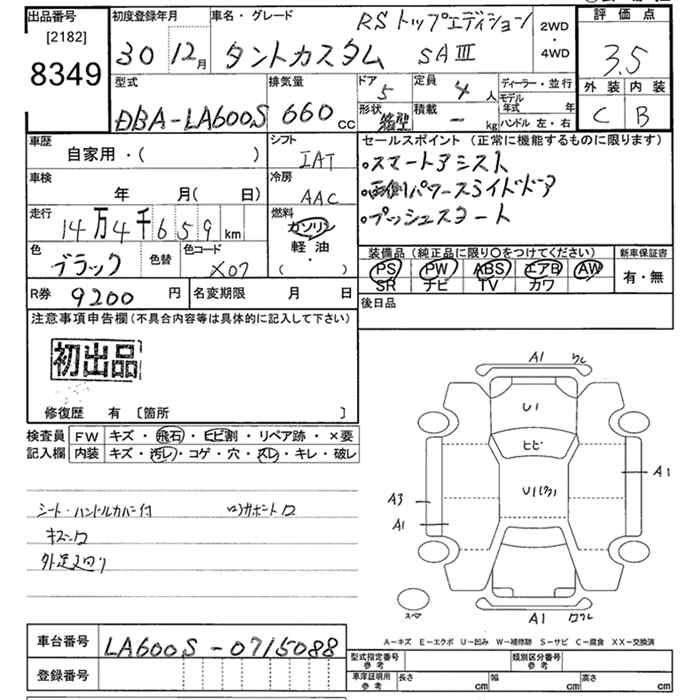 出品番号 初度登録年月 車名・グレード RS トップエディション 2WD・4WD 評価点
[2182]
8349 30 12月 タントカスタム SAⅢ 3.5
型式 排気量 ドア 5 定員 4人 ディーラー・並行 外装 内装
モデル年式 年
DBA-LA600S 660cc 形状 積載 - kg ハンドル 左・右 C B
車歴 シフト セールスポイント (正常に機能するものに限ります)
自家用・( ) IAT ・スマートアシスト
車検 冷房 ・両側パワースライドドア
年 月( 日) AAC ・プッシュスタート
走行 燃料
14万4千659km ガソリン
軽・油
( )
色 ブラック 色替 色コード X07
装備品 (純正品に限り〇をつけてください) 新車保証書
PS PW ABS エアB AW 有・無
SR ナビ TV カワ
R券 9200円 名変期限 月 日 後日品
注意事項申告欄(不具合内容等は具体的に記入して下さい)
初出品
修復歴 有 [箇所 ]
検査員 FW キズ・飛石・ヒビ割・リペア跡・×要
記入欄 内装 キズ・汚レ・コゲ・穴・スレ・キレ・破レ
シート・ハンドルカバー付
キズ
A1
U1
ヒビ
A1
A3
A1
A1
A-キズ E-エクボ U-凹み W-補修跡 S-サビ C-腐食 XX-交換済
車台番号 LA600S-0715088
型式指定番号 参考 類別区分番号 参考
登録番号
車庫証明用 参考 長さ cm 幅 cm 高さ cm